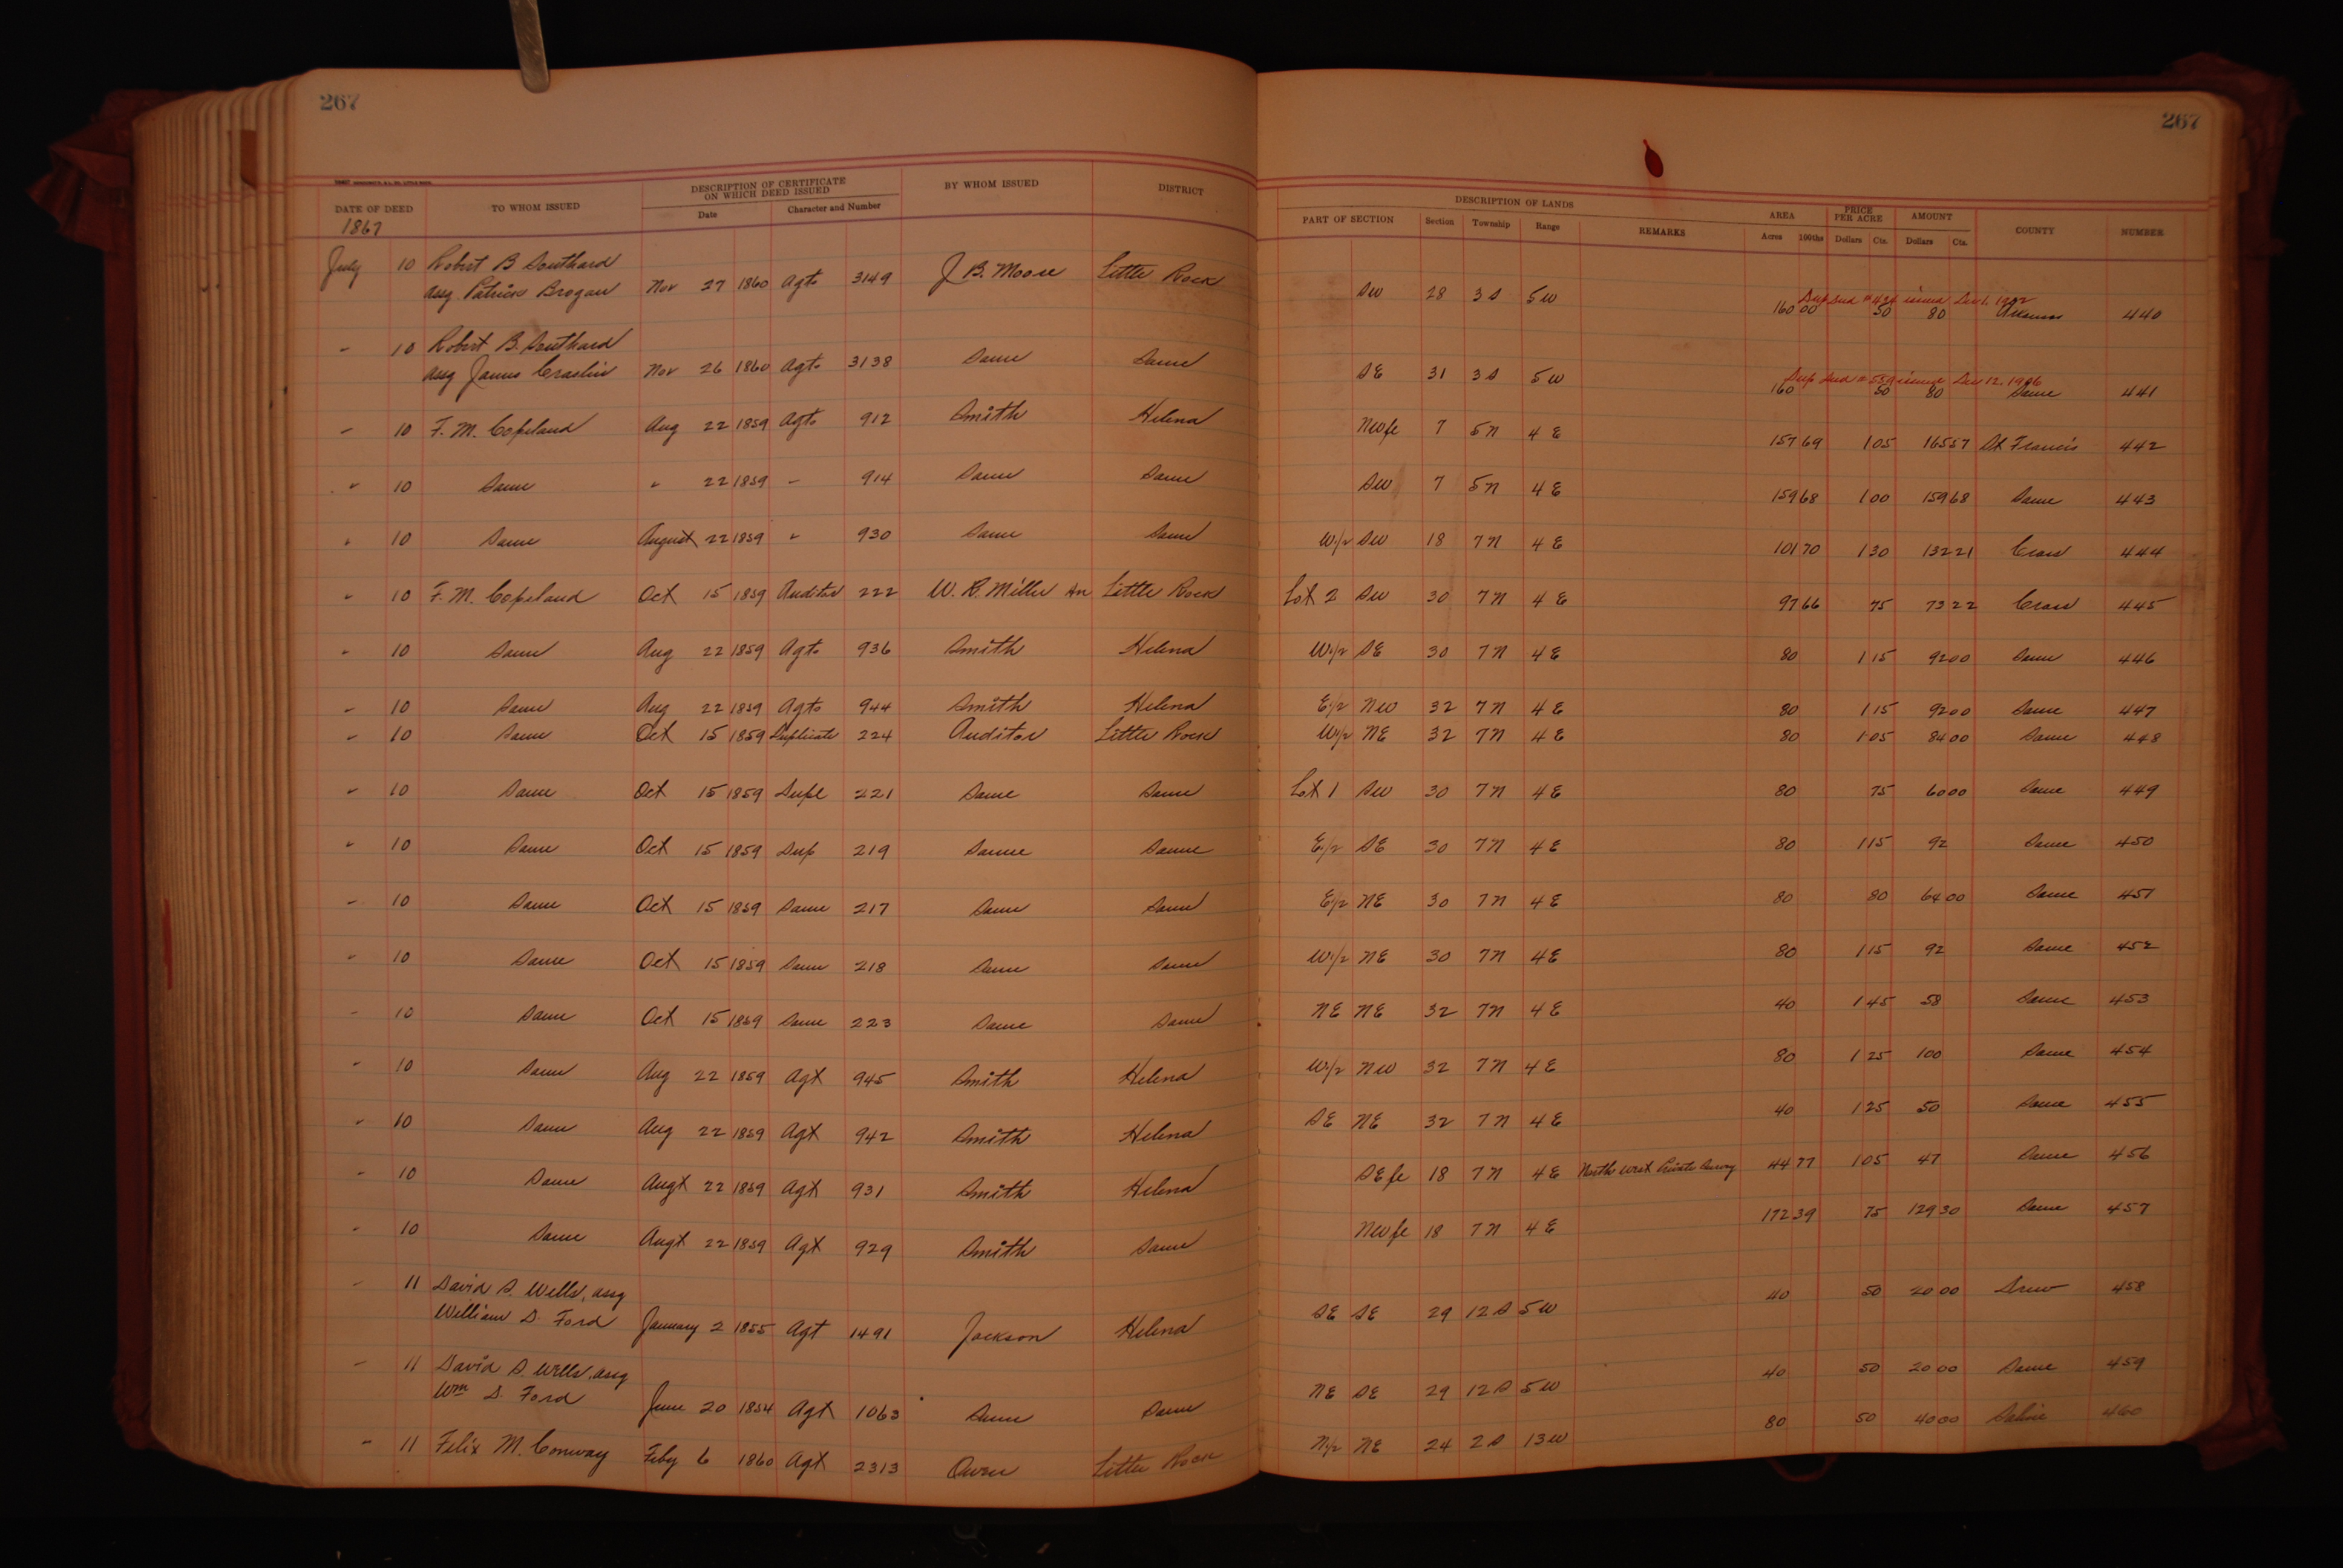 267
267
DATE OF DEED
TO WHOM ISSUED
DESCRIPTION OF CERTIFICATE
ON WHICH DEED ISSUED
Date
Character and Number
BY WHOM ISSUED
DISTRICT
DESCRIPTION OF LANDS
PART OF SECTION
Section
Township
Range
REMARKS
AREA
Acres
100ths
PRICE
PER ACRE
Dollars
Cts.
AMOUNT
Dollars
Cts.
COUNTY
NUMBER
1867
July 10 Robert B Southard
assg Patrick Brogan Nov 27 1860 Agts 3149 J B. Moore Little Rock SW 28 3 S 5 W 160 00 50 80 Arkansas 440
issued Dec 1, 1902
" 10 Robert B. Southard
assg James Nov 26 1860 Agts 3138 Same Same SE 31 3 S 5 W 160 50 80 Same 441
issued Dec 12, 1906
" 10 F. M. Copeland Aug 22 1859 Agts 912 Smith Helena NW fr 7 5 N 4 E 157 69 1 05 165 57 St Francis 442
" 10 Same " 22 1859 " 914 Same Same SW 7 5 N 4 E 159 68 1 00 159 68 Same 443
" 10 Same August 22 1859 " 930 Same Same W 1/2 SW 18 7 N 4 E 101 70 1 30 132 21 Cross 444
" 10 F. M. Copeland Oct 15 1859 Auditor 222 W. R. Miller Little Rock Lot 2 SW 30 7 N 4 E 97 66 75 73 22 Cross 445
" 10 Same Aug 22 1859 Agts 936 Smith Helena W 1/2 SE 30 7 N 4 E 80 1 15 92 00 Same 446
" 10 Same Aug 22 1859 Agts 944 Smith Helena E 1/2 NW 32 7 N 4 E 80 1 15 92 00 Same 447
" 10 Same Oct 15 1859 Duplicate 224 Auditor Little Rock W 1/2 NE 32 7 N 4 E 80 1 05 84 00 Same 448
" 10 Same Oct 15 1859 Dupl 221 Same Same Lot 1 SW 30 7 N 4 E 80 75 60 00 Same 449
" 10 Same Oct 15 1859 Dup 219 Same Same E 1/2 SE 30 7 N 4 E 80 1 15 92 Same 450
" 10 Same Oct 15 1859 Same 217 Same Same E 1/2 NE 30 7 N 4 E 80 80 64 00 Same 451
" 10 Same Oct 15 1859 Same 218 Same Same W 1/2 NE 30 7 N 4 E 80 1 15 92 Same 452
" 10 Same Oct 15 1859 Same 223 Same Same NE NE 32 7 N 4 E 40 1 45 58 Same 453
" 10 Same Aug 22 1859 Agt 945 Smith Helena W 1/2 NW 32 7 N 4 E 80 1 25 100 Same 454
" 10 Same Aug 22 1859 Agt 942 Smith Helena SE NE 32 7 N 4 E 40 1 25 50 Same 455
" 10 Same Augt 22 1859 Agt 931 Smith Helena SE fr 18 7 N 4 E North West Private Survey 44 77 1 05 47 Same 456
" 10 Same Augt 22 1859 Agt 929 Smith Same NW fr 18 7 N 4 E 172 39 75 129 30 Same 457
" 11 David S. Wells, assg
William D. Ford January 2 1855 Agt 1491 Jackson Helena SE SE 29 12 S 5 W 40 50 20 00 Drew 458
" 11 David S. Wells, assg
Wm D. Ford June 20 1854 Agt 1063 Same Same NE SE 29 12 S 5 W 40 50 20 00 Same 459
" 11 Felix M. Conway Feby 6 1860 Agt 2313 Owen Little Rock N 1/2 NE 24 2 S 13 W 80 50 40 00 Saline 460